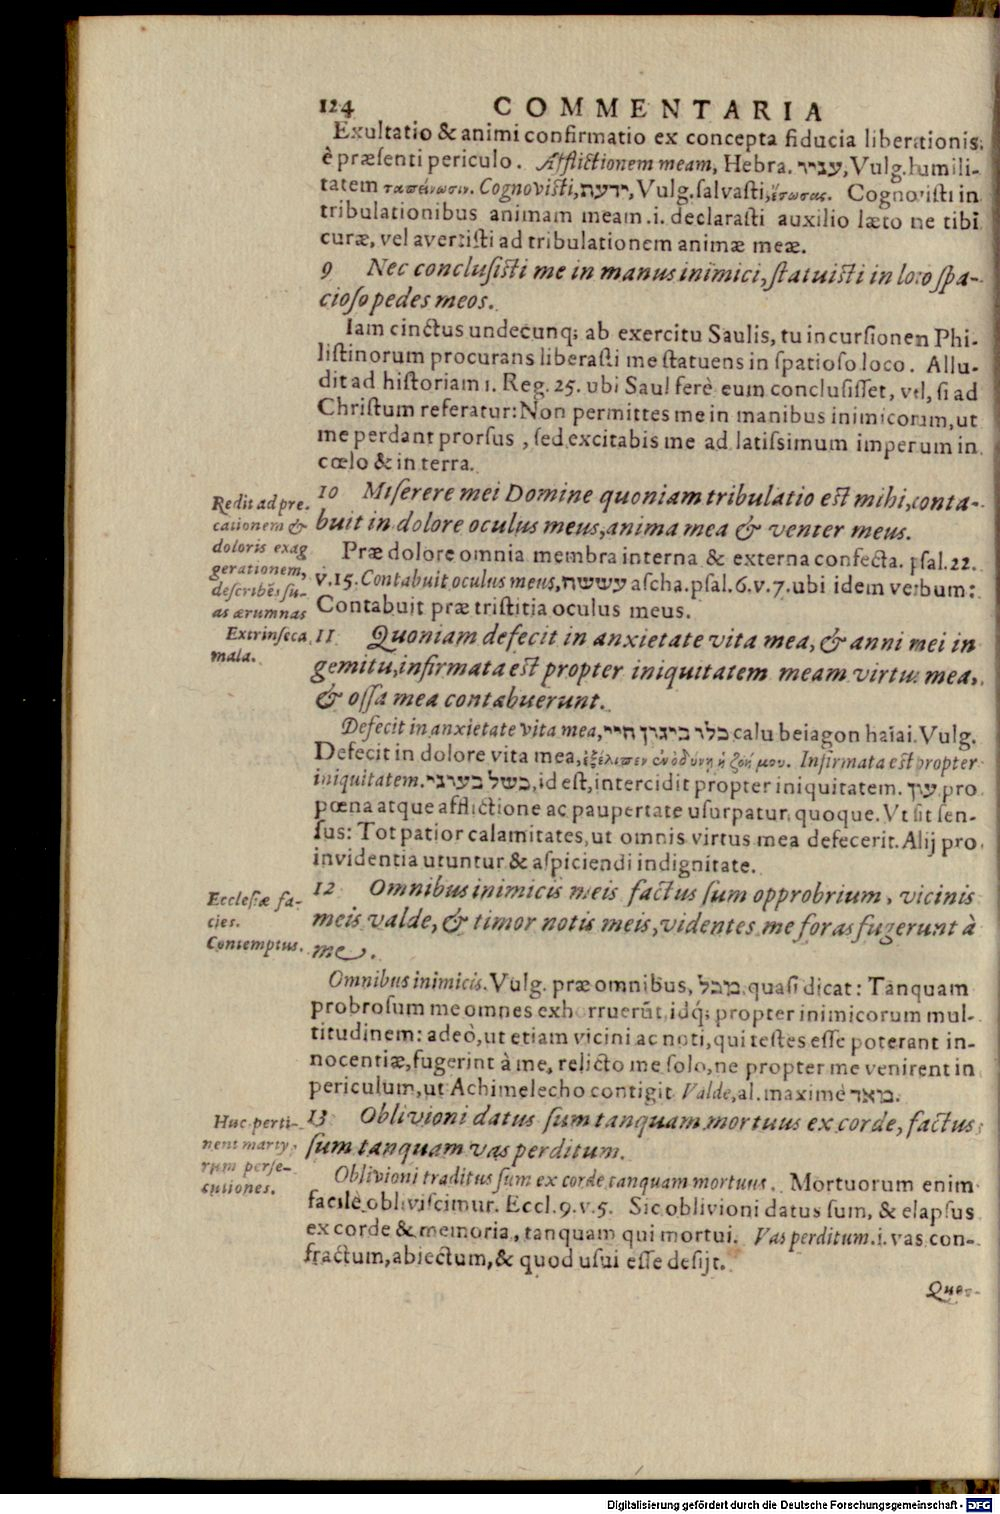 124 COMMENTARIA
Exultatio & animi confirmatio ex concepta fiducia liberationis,
è præsenti periculo. Afflictionem meam, Hebra. עניי, Vulg. humili-
tatem ταπείνωσιν. Cognovisti, ידעת, Vulg. salvasti, ἔσωσας. Cognovisti in
tribulationibus animam meam .i. declarasti auxilio læto ne tibi
curæ, vel avertisti ad tribulationem animæ meæ.
9 Nec conclusisti me in manus inimici, statuisti in loco spa-
cioso pedes meos.
Iam cinctus undecunq; ab exercitu Saulis, tu incursionen Phi-
listinorum procurans liberasti me statuens in spatioso loco. Allu-
dit ad historiam 1. Reg. 25. ubi Saul ferè eum conclusisset, vel, si ad
Christum referatur: Non permittes me in manibus inimicorum, ut
me perdant prorsus, sed excitabis me ad latissimum imperum in
cœlo & in terra.
10 Miserere mei Domine quoniam tribulatio est mihi, conta-
buit in dolore oculus meus, anima mea & venter meus.
Redit ad pre-
cationem &
doloris exag
gerationem,
describẽs su-
as ærumnas
Præ dolore omnia membra interna & externa confecta. psal. 22.
v. 15. Contabuit oculus meus, עששת ascha. psal. 6. v. 7. ubi idem verbum:
Contabuit præ tristitia oculus meus.
Extrinseca
mala.
11 Quoniam defecit in anxietate vita mea, & anni mei in
gemitu, infirmata est propter iniquitatem meam virtus mea,
& ossa mea contabuerunt.
Defecit in anxietate vita mea, כלו ביגון חיי calu beiagon haiai. Vulg.
Defecit in dolore vita mea, ἐξέλιπεν ἐν ὀδύνῃ ἡ ζωή μου. Infirmata est propter
iniquitatem. כשל בעוני, id est, intercidit propter iniquitatem. עון pro
pœna atque afflictione ac paupertate usurpatur quoque. Vt sit sen-
sus: Tot patior calamitates, ut omnis virtus mea defecerit. Alij pro
invidentia utuntur & aspiciendi indignitate.
Ecclesiæ fa-
cies.
Contemptus.
12 Omnibus inimicis meis factus sum opprobrium, vicinis
meis valde, & timor notis meis, videntes me foras fugerunt à
me.
Omnibus inimicis. Vulg. præ omnibus, מכל quasi dicat: Tanquam
probrosum me omnes exhorruerũt, idq; propter inimicorum mul-
titudinem: adeò, ut etiam vicini ac noti, qui testes esse poterant in-
nocentiæ, fugerint à me, relicto me solo, ne propter me venirent in
periculum, ut Achimelecho contigit. Valde, al. maximè מאד.
Huc perti-
nent marty-
rum perse-
cutiones.
13 Oblivioni datus sum tanquam mortuus ex corde, factus
sum tanquam vas perditum.
Oblivioni traditus sum ex corde tanquam mortuus. Mortuorum enim
facilè obliviscimur. Eccl. 9. v. 5. Sic oblivioni datus sum, & elapsus
ex corde & memoria, tanquam qui mortui. Vas perditum .i. vas con-
fractum, abiectum, & quod usui esse desijt.
Que-
Digitalisierung gefördert durch die Deutsche Forschungsgemeinschaft - DFG